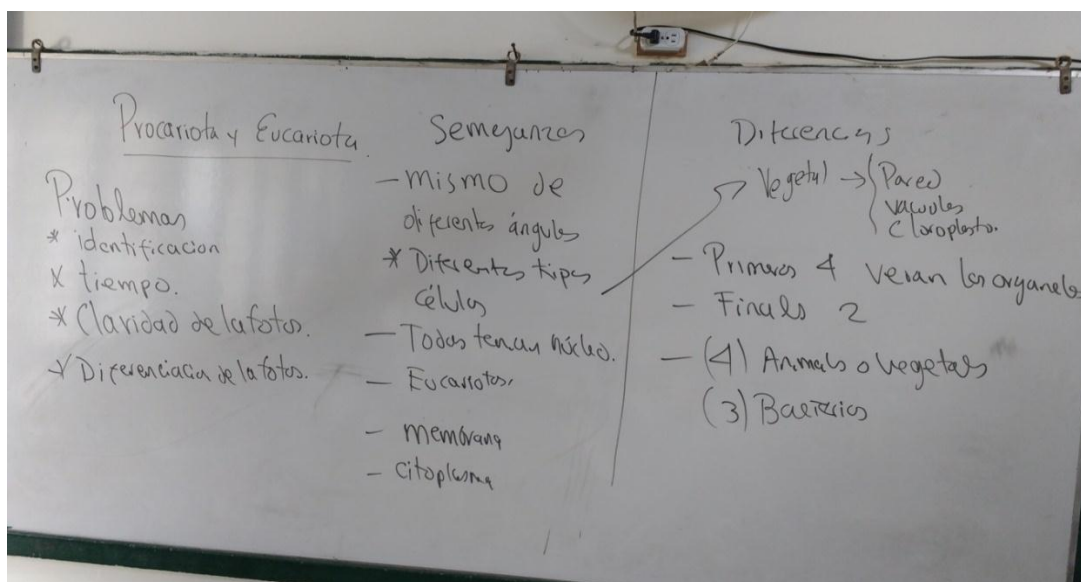 Procariota y Eucariota.
Problemas
* identificacion
x tiempo.
* Claridad de la fotos.
x Diferenciacia de la fotos.
Semejanzas
- mismo de
diferentes ángulos
* Diferentes tipos
células
- Todas tenian núcleo.
- Eucariotas.
- memórana
- citoplasma
Diferencias
Vegetal → Pared
vacuolas
Cloroplasto.
- Primeros 4 veran los organelos
- Finals 2
- (4) Animals o vegetals
(3) Bacterias